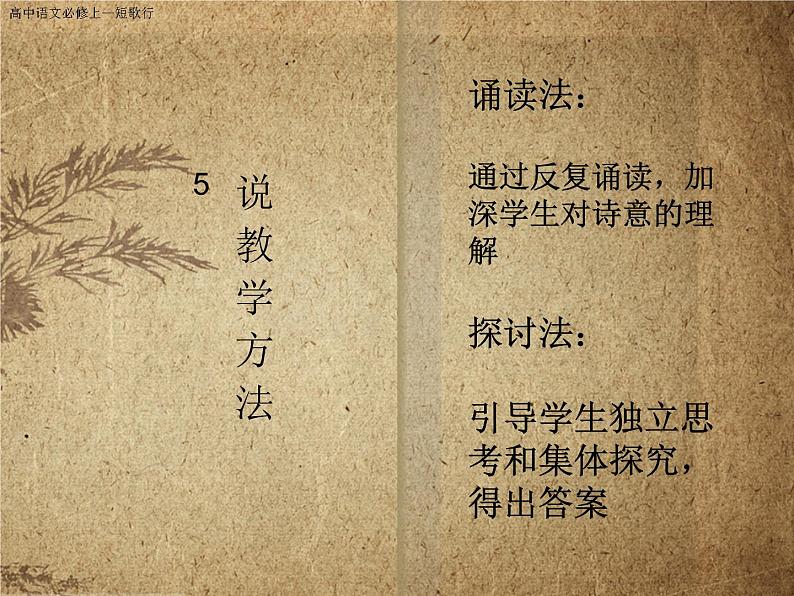 高中语文必修上—短歌行
5
说教学方法
诵读法：
通过反复诵读，加
深学生对诗意的理
解
探讨法：
引导学生独立思
考和集体探究，
得出答案